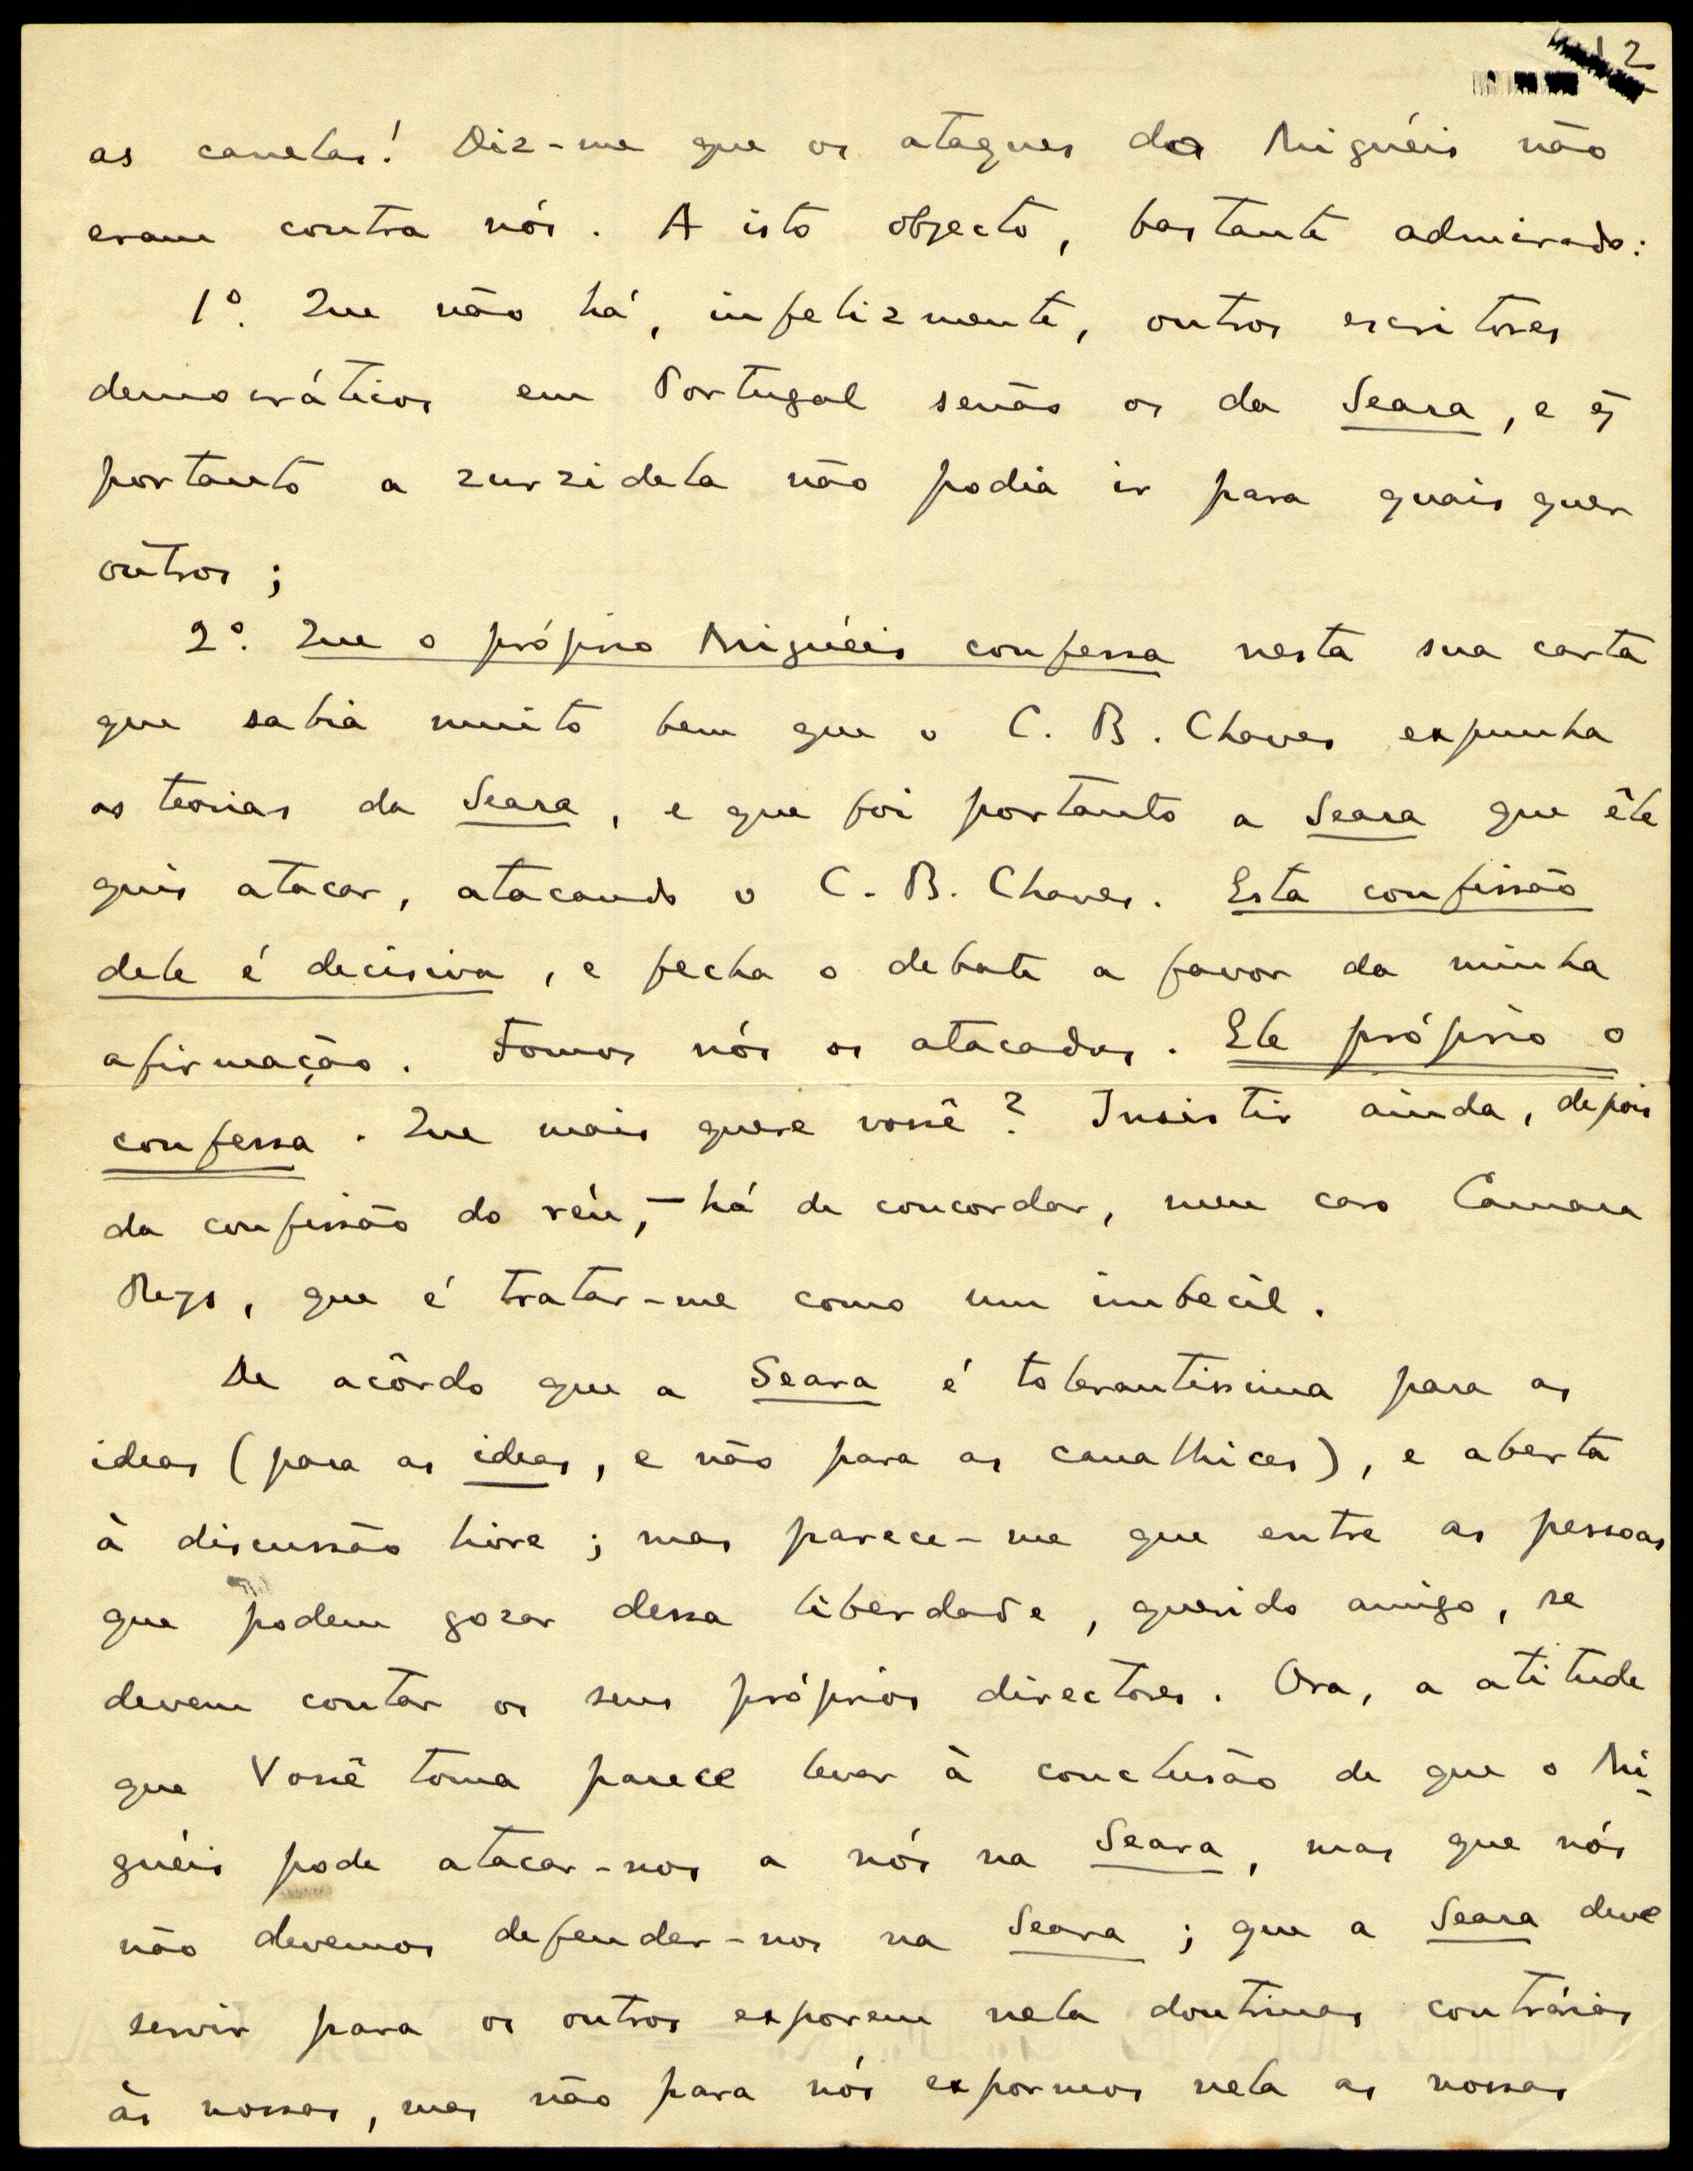 2
as canelas! Diz-me que os ataques do Miguéis não
eram contra nós. A isto objecto, bastante admirado:
1º. Que não há, infelizmente, outros escritores
democráticos em Portugal senão os da Seara, e q̃
portanto a zurzidela não podia ir para quaisquer
outros;
2º. Que o próprio Miguéis confessa nesta sua carta
que sabia muito bem que o C. B. Chaves expunha
as teorias da Seara, e que foi portanto a Seara que êle
quis atacar, atacando o C. B. Chaves. Esta confissão
dele é decisiva, e fecha o debate a favor da minha
afirmação. Fomos nós os atacados. Ele próprio o
confessa. Que mais quere você? Insistir ainda, depois
da confissão do réu, — há de concordar, meu caro Camara
Reys, que é tratar-me como um imbecil.
De acôrdo que a Seara é tolerantissima para as
ideas (para as ideas, e não para as canalhices), e aberta
à discussão livre; mas parece-me que entre as pessoas
que podem gozar dessa liberdade, querido amigo, se
devem contar os seus próprios directores. Ora, a atitude
que Você toma parece levar à conclusão de que o Mi-
guéis pode atacar-nos a nós na Seara, mas que nós
não devemos defender-nos na Seara; que a Seara deve
servir para os outros exporem nela doutrinas contrárias
às nossas, mas não para nós expormos nela as nossas